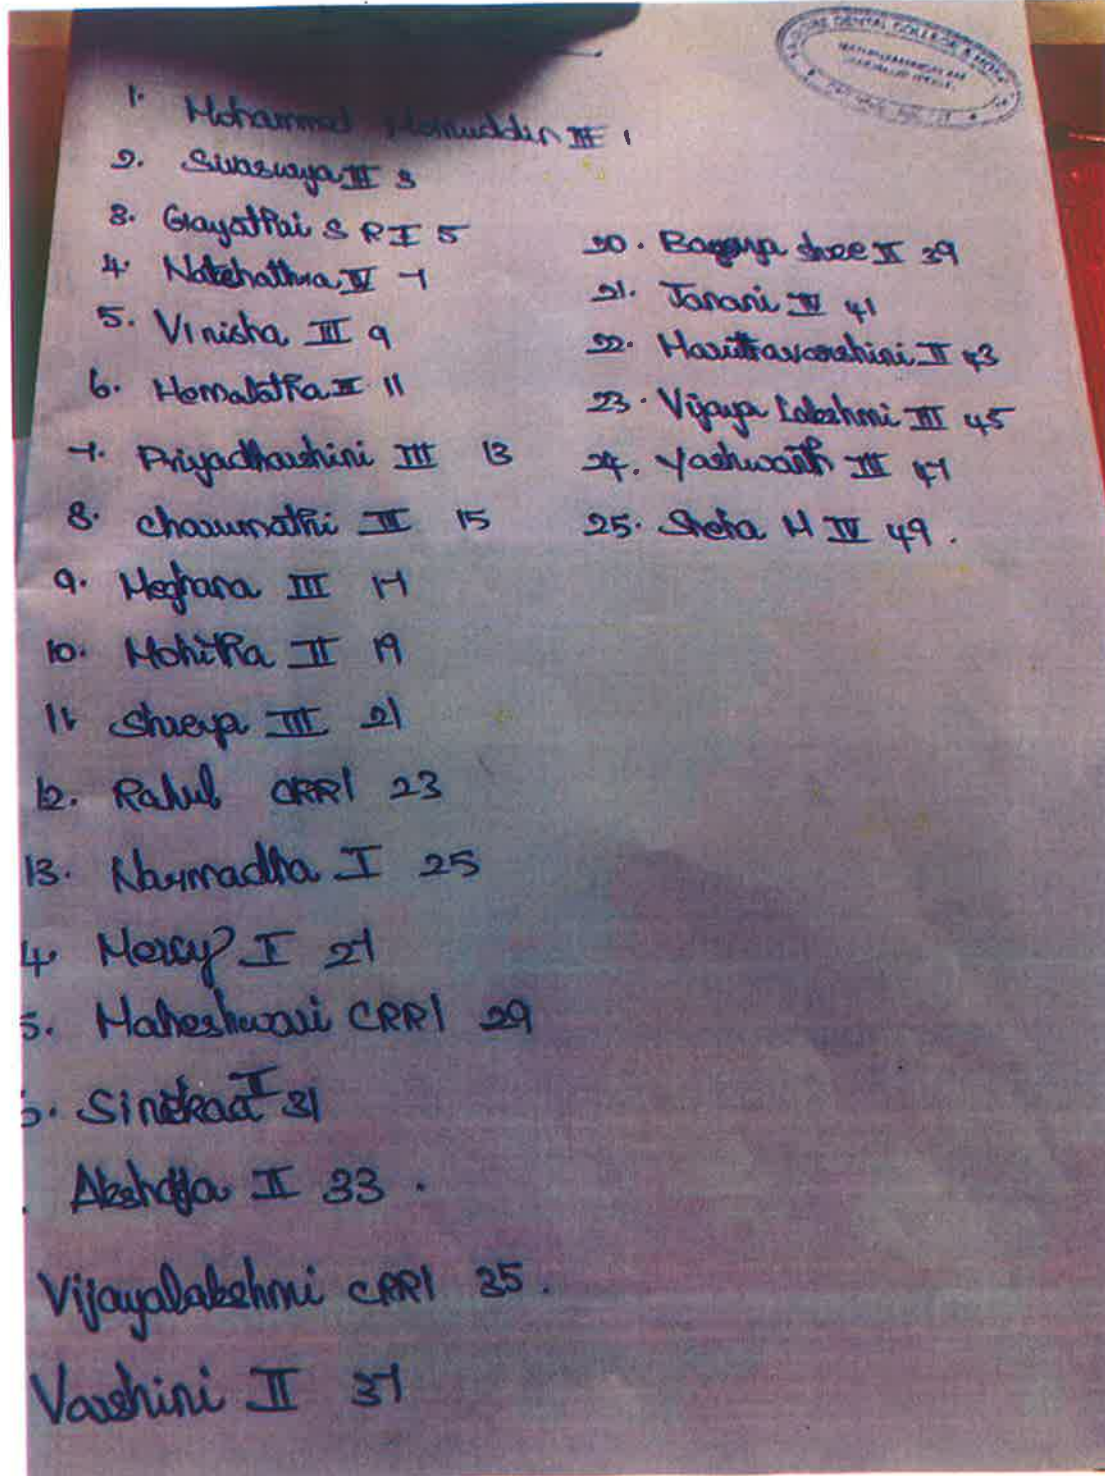 DENTAL COLLEGE &
1. Mohammed Moinuddin III 1
2. III 3
3. Gayathri S R I 5
4. Nakshathra IV 7
5. Vinisha III 9
6. Hemalatha II 11
7. Priyadharshini III 13
8. Charumathi III 15
9. Meghana III 17
10. Mohitha II 19
11. Shreya III 21
12. Rahul CRRI 23
13. Narmadha I 25
4. Mercy I 27
5. Maheshwari CRRI 29
I 31
II 33.
Vijayalakshmi CRRI 35.
Varshini II 37
20. shree II 39
21. Janani IV 41
22. II 43
23. Vijaya Lakshmi III 45
24. Yashwanth III 47
25. M IV 49.